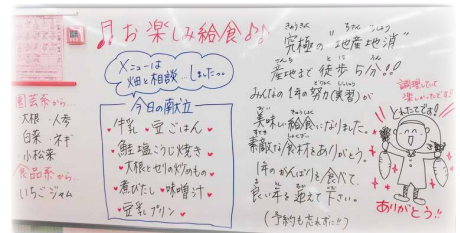 ♬お楽しみ給食♪♪
メニューは
畑と相談…しました…
今日の献立
・牛乳 ・豆ごはん
・鮭塩こうじ焼き
・大根とセリの炒めもの
・煮びたし ・味噌汁
・豆乳プリン
園芸系から…
大根・人参
白菜・ネギ
・小松菜
食品系から…
いちごジャム
究極の"地産地消"
産地まで徒歩5分!!
みんなの1年の努力(実習)が
美味しい給食になりました。
素敵な食材をありがとう。
1年のがんばりを食べて、
良い年を迎えて下さい。
(予約も忘れずに!!)
調理してって
楽しかったです!
とれたてです!
ありがとう!!